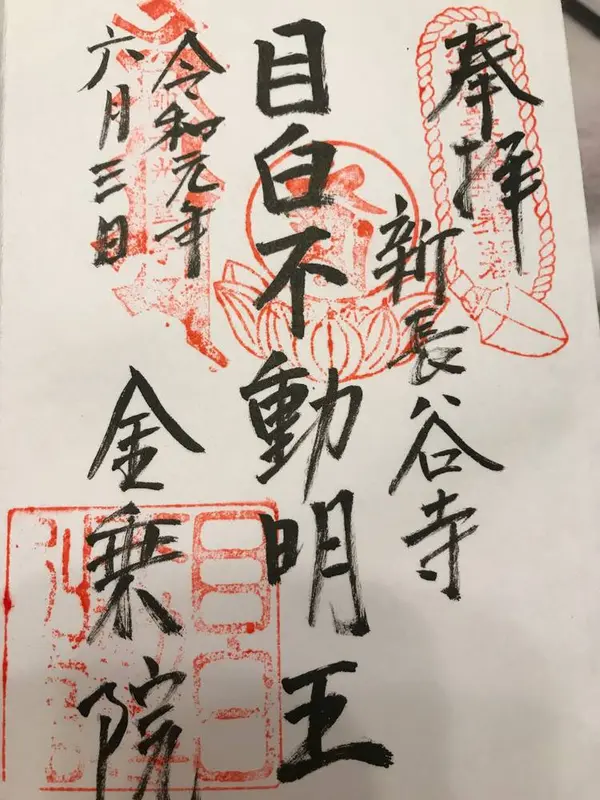 奉拝
新長谷寺
目白不動明王
令和元年
六月三日
金乗院